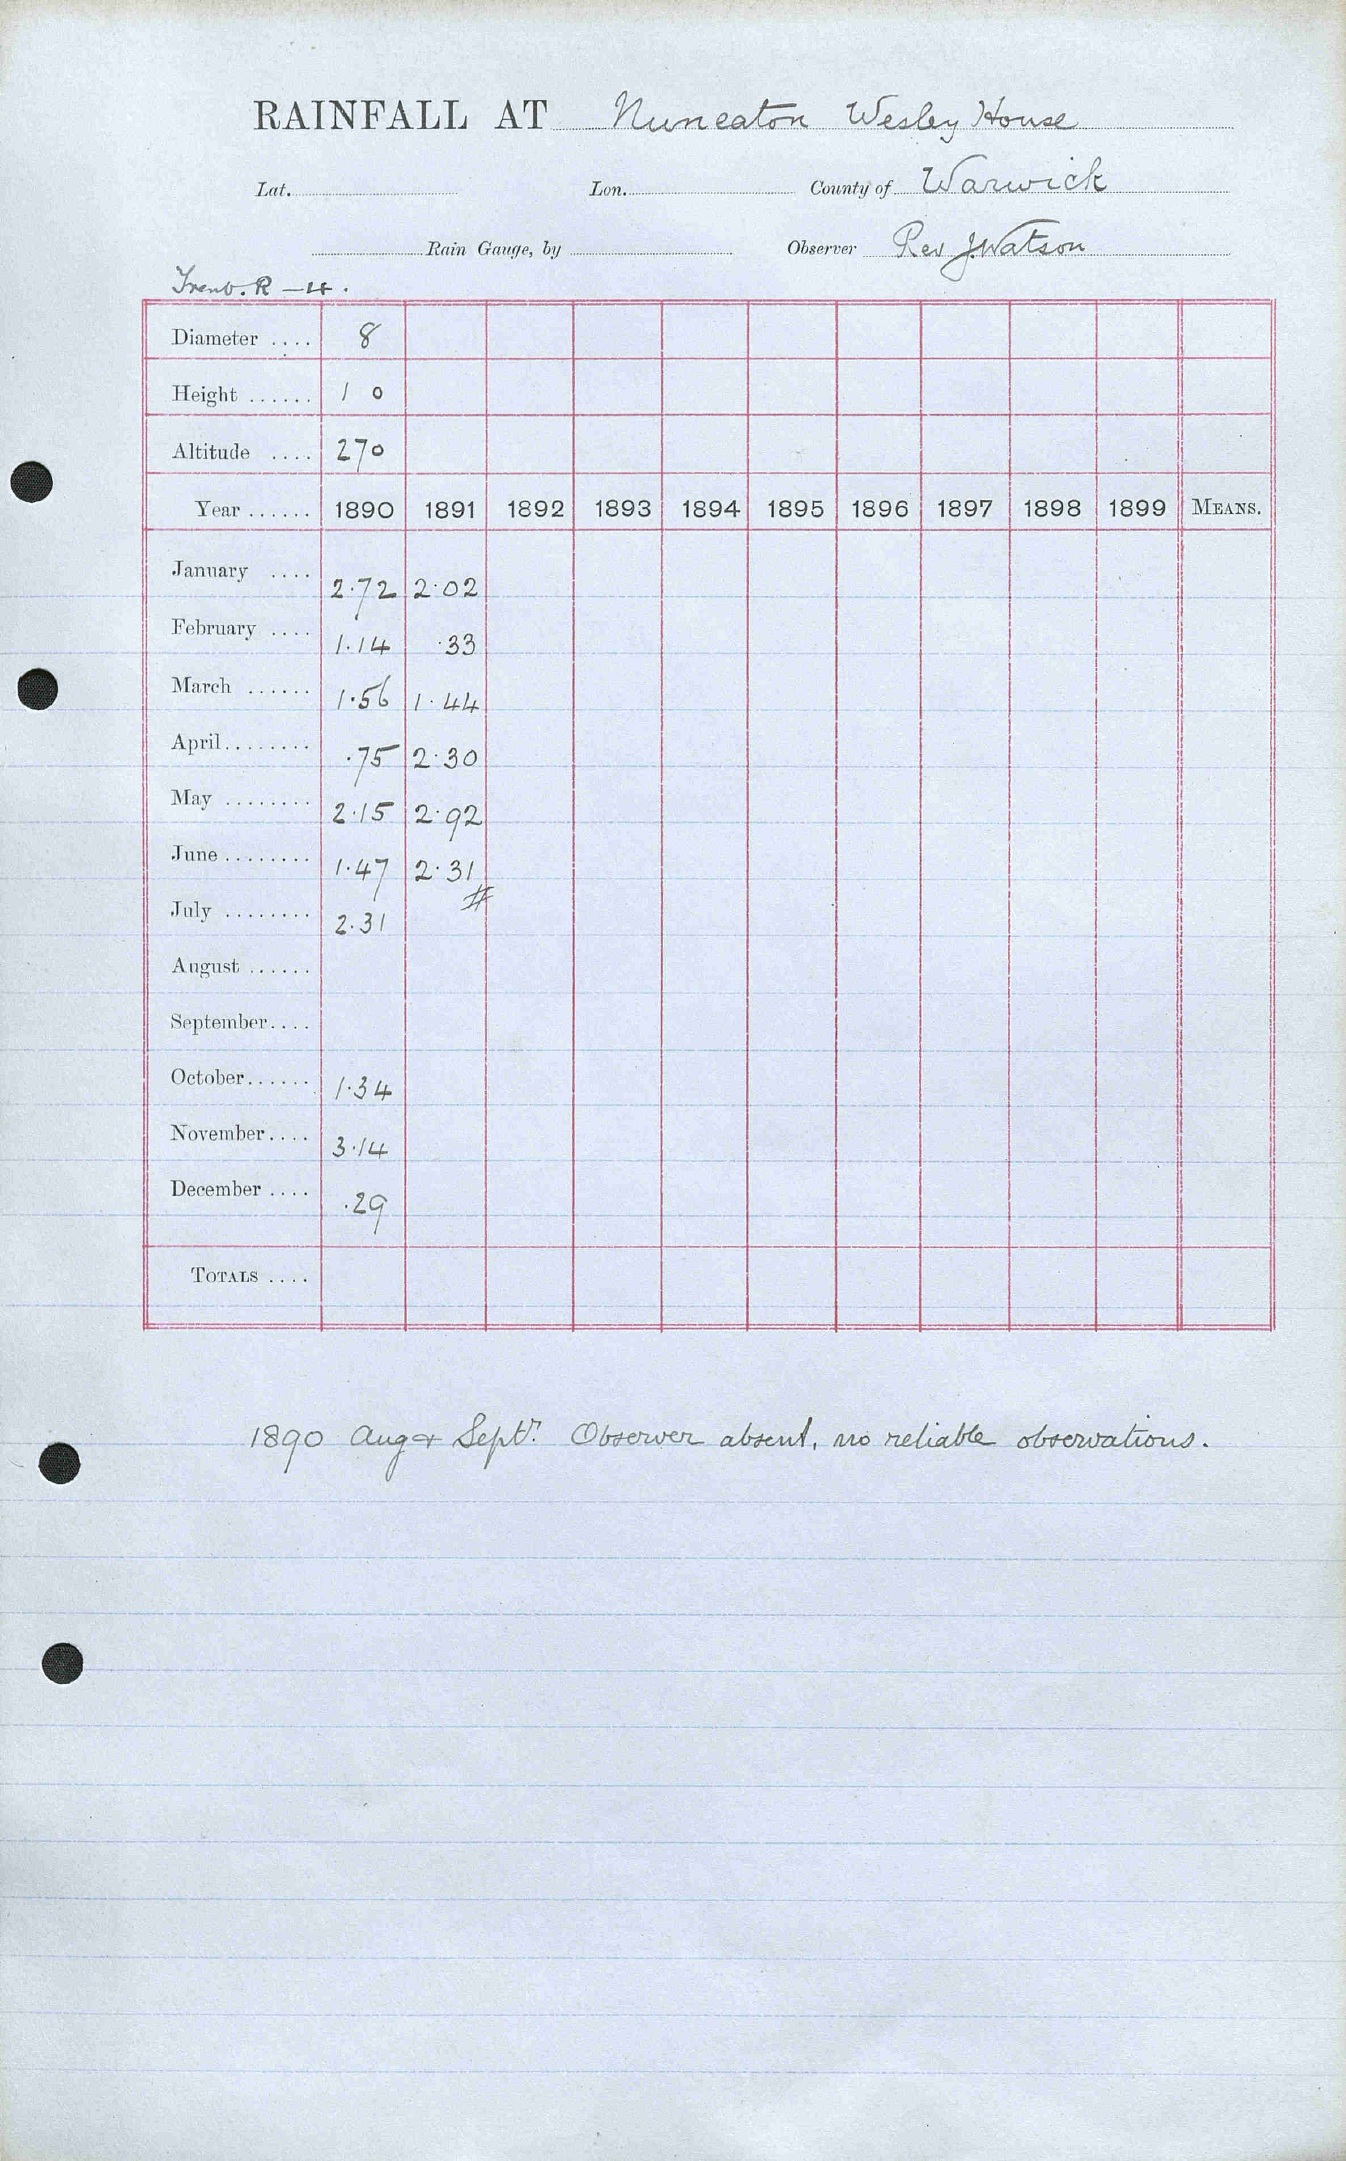 RAINFALL AT Nuneaton Wesley House
Lat. Lon. County of Warwick
Rain Gauge, by Observer Rev J. Watson
Trent. R - 4.
Diameter .... 8
Height ...... 1 0
Altitude .... 270
Year ...... 1890 1891 1892 1893 1894 1895 1896 1897 1898 1899 MEANS.
January .... 2.72 2.02
February .... 1.14 .33
March ...... 1.56 1.44
April........ .75 2.30
May ........ 2.15 2.92
June ........ 1.47 2.31
July ........ 2.31 #
August ......
September....
October...... 1.34
November.... 3.14
December .... .29
TOTALS ....
1890 Aug & Septr. Observer absent, no reliable observations.